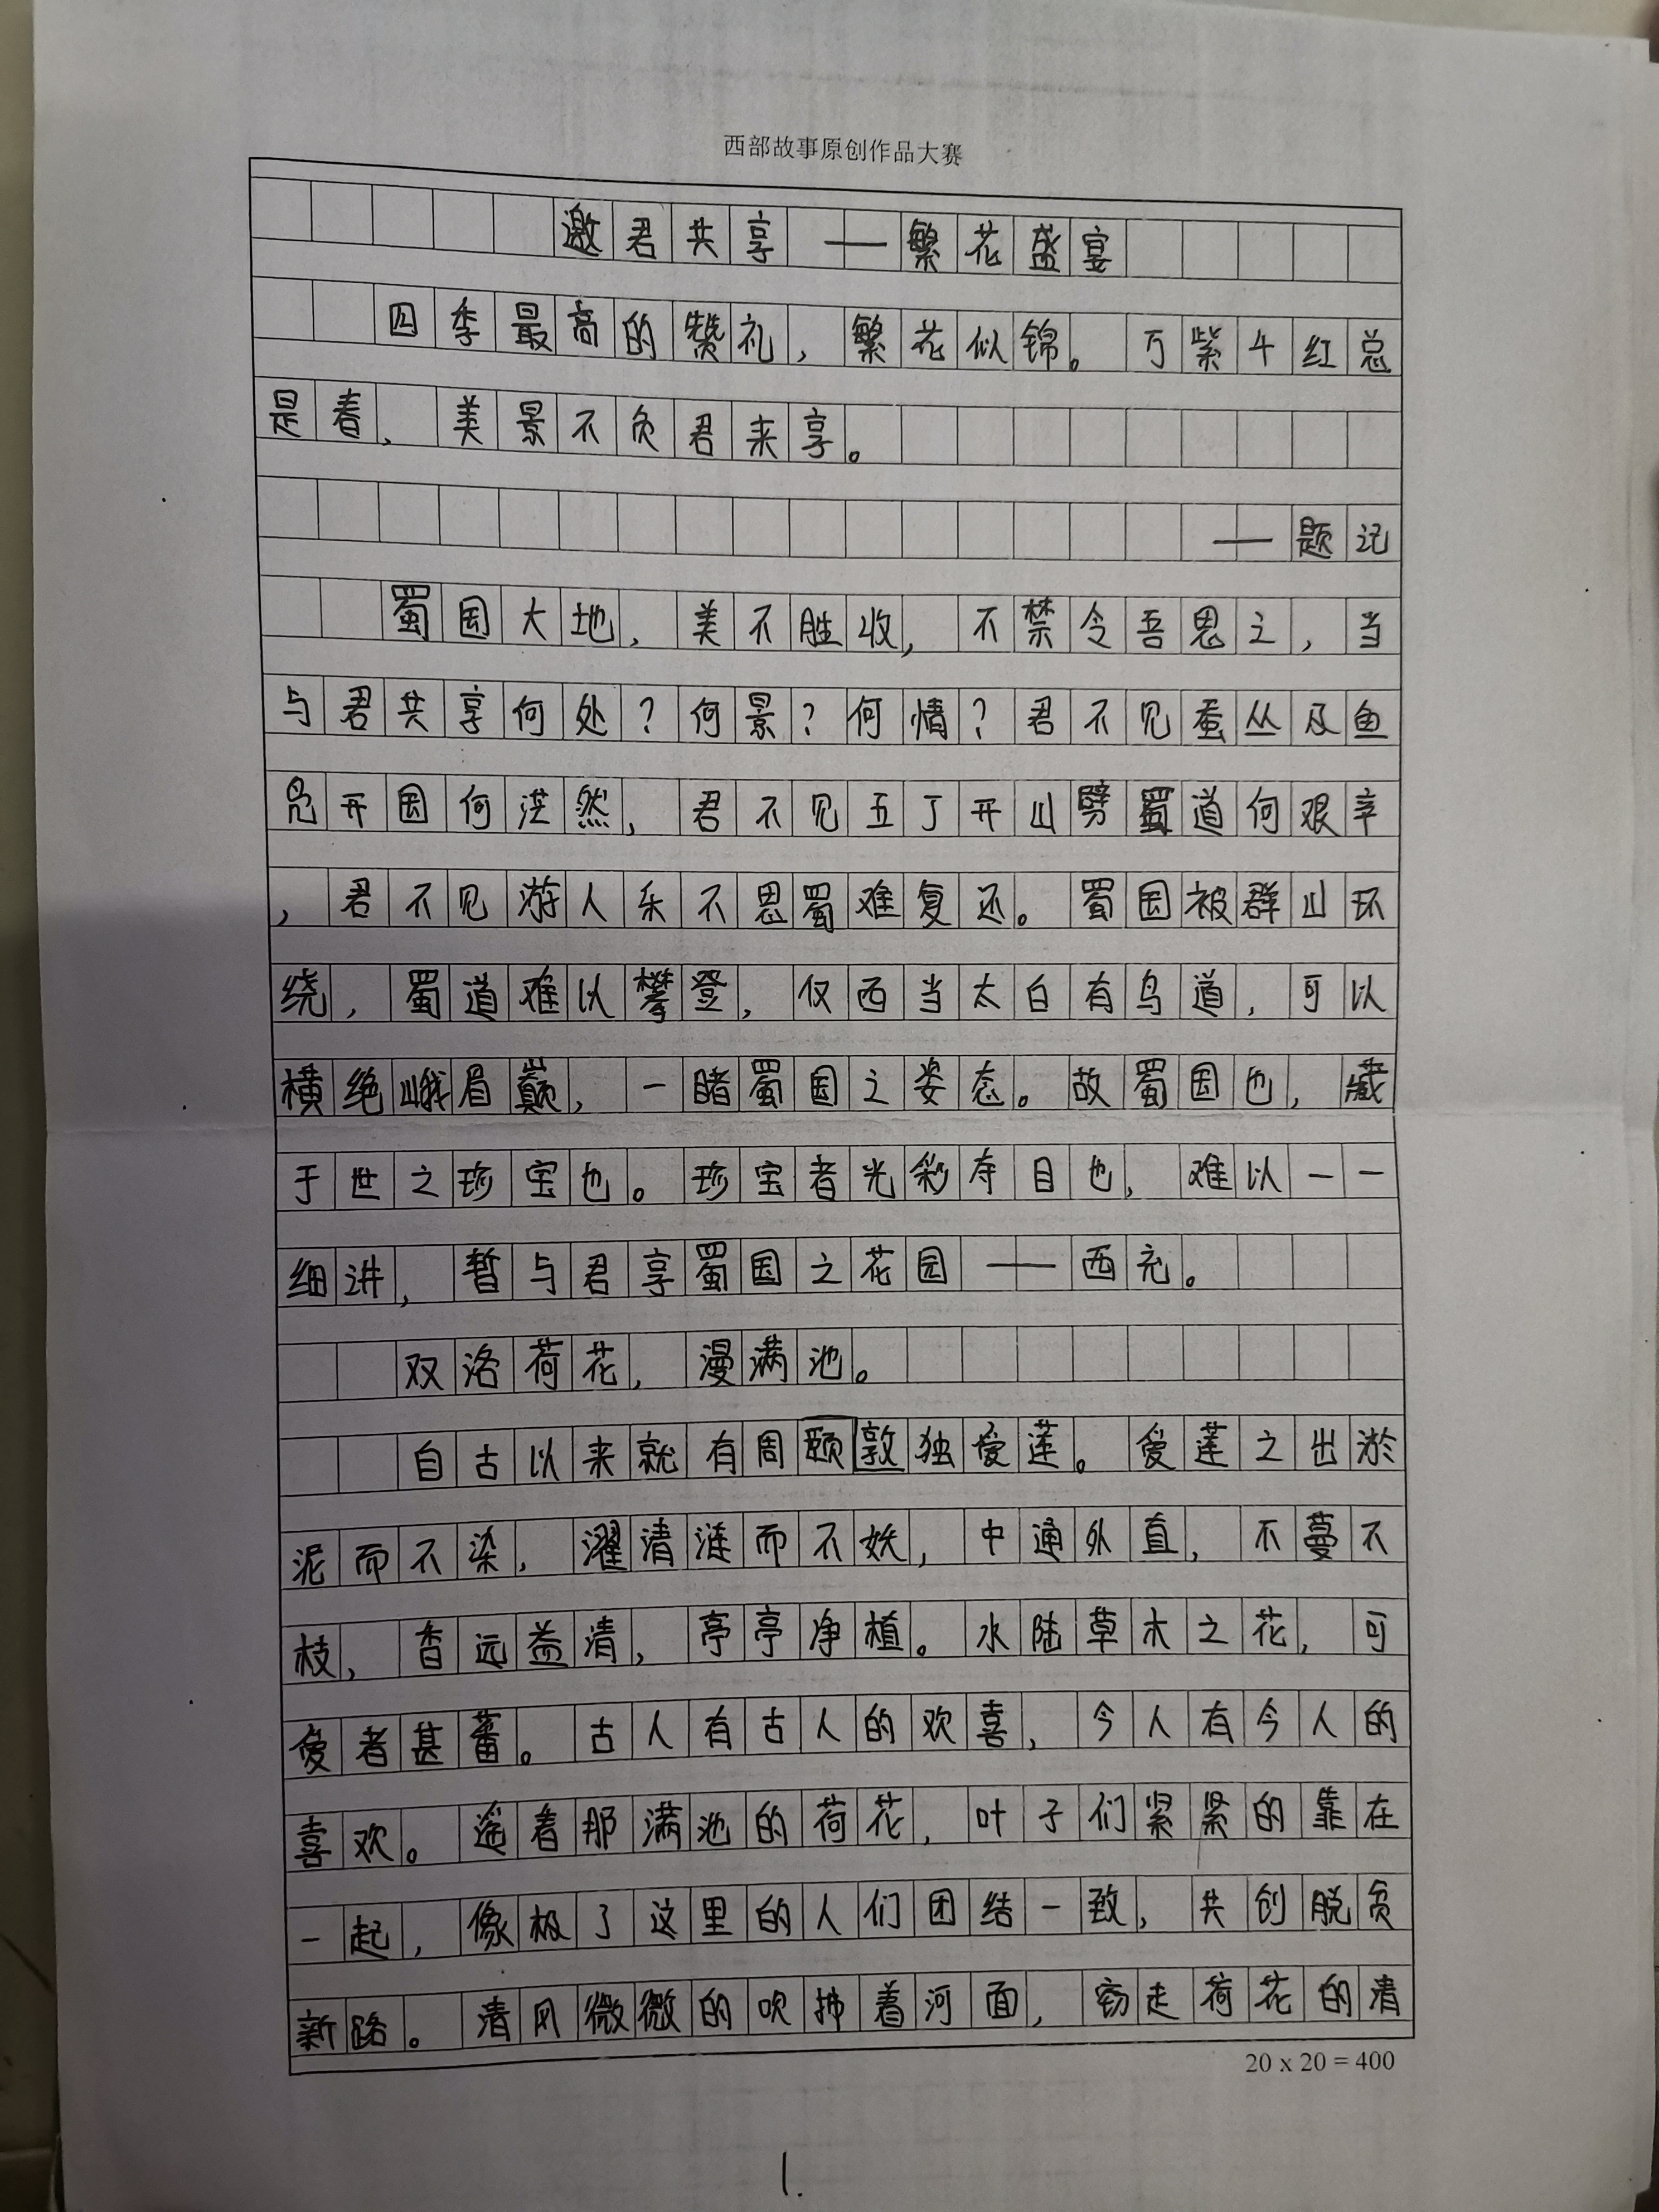 西部故事原创作品大赛
邀君共享——繁花盛宴
四季最高的赞礼，繁花似锦。万紫千红总
是春，美景不负君来享。
——题记
蜀国大地，美不胜收，不禁令吾思之，当
与君共享何处？何景？何情？君不见蚕丛及鱼
凫开国何茫然，君不见五丁开山劈蜀道何艰辛
，君不见游人乐不思蜀难复还。蜀国被群山环
绕，蜀道难以攀登，仅西当太白有鸟道，可以
横绝峨眉巅，一睹蜀国之姿态。故蜀国也，藏
于世之珍宝也。珍宝者光彩夺目也，难以一一
细讲，暂与君享蜀国之花园——西充。
双洛荷花，漫满池。
自古以来就有周颐敦独爱莲。爱莲之出淤
泥而不染，濯清涟而不妖，中通外直，不蔓不
枝，香远益清，亭亭净植。水陆草木之花，可
爱者甚蕃。古人有古人的欢喜，今人有今人的
喜欢。遥看那满池的荷花，叶子们紧紧的靠在
一起，像极了这里的人们团结一致，共创脱贫
新路。清风微微的吹拂着河面，窃走荷花的清
20 x 20 = 400
1.